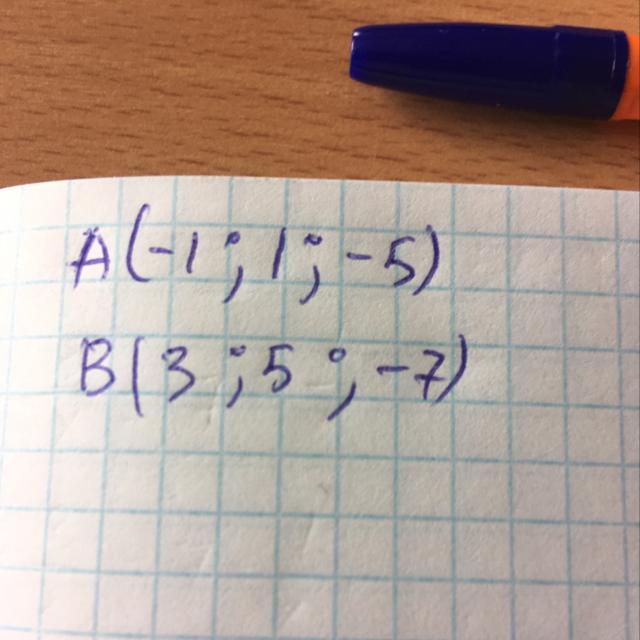 A(-1;1;-5)
B(3;5;-7)